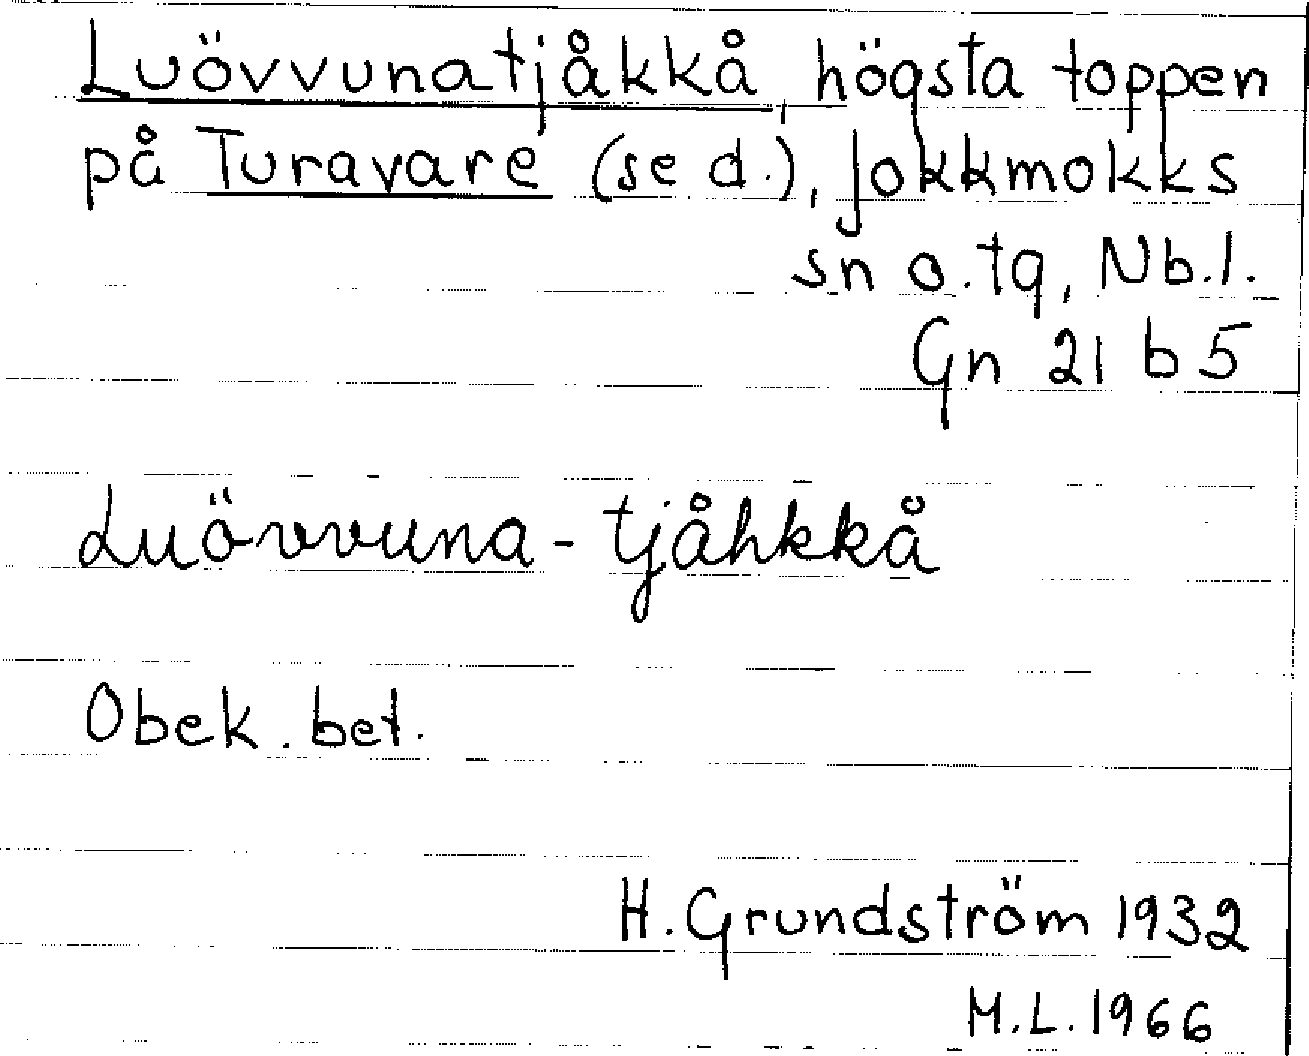 Luövvunatjåkkå, högsta toppen
på Turavare (se d.), Jokkmokks
sn o. tg, Nb.l.
Gn 21 b 5
Luövvuna - tjåhkkå
Obek. bet.
H. Grundström 1932
M.L. 1966